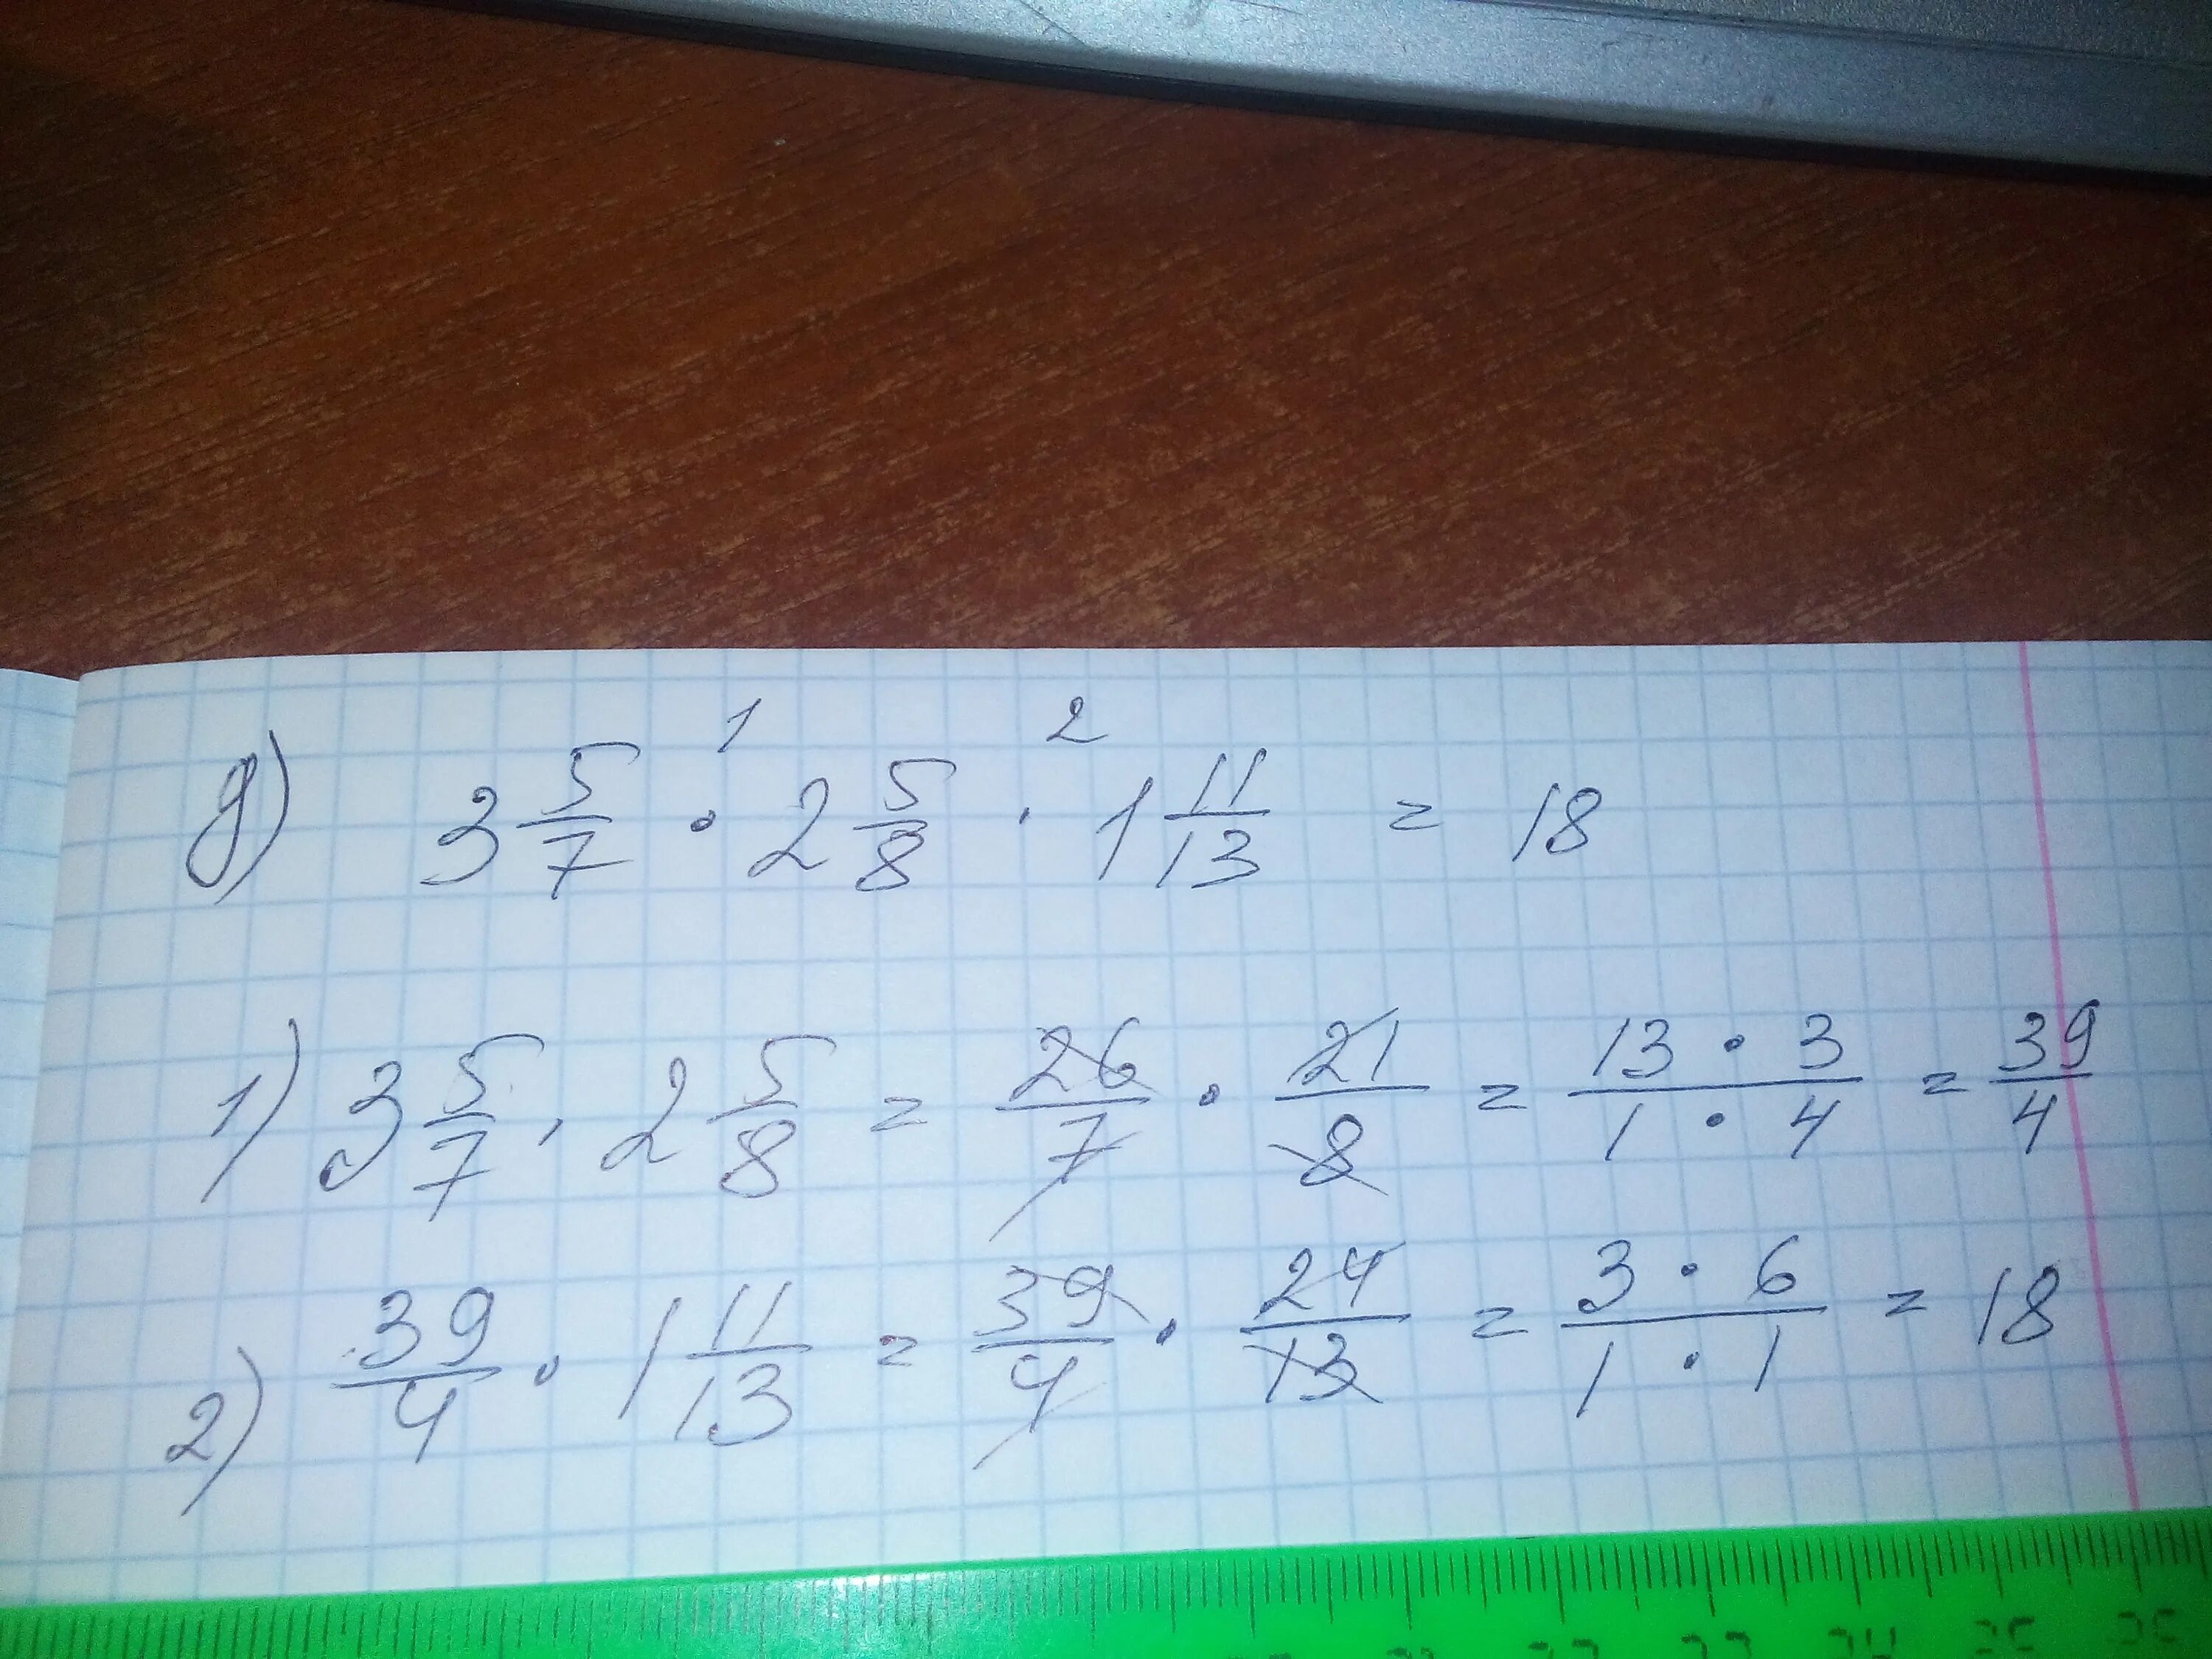 1 2
д) 3 5/7 · 2 5/8 · 1 11/13 = 18
1) 3 5/7 · 2 5/8 = 26/7 · 21/8 = 13 · 3/1 · 4 = 39/4
2) 39/4 · 1 11/13 = 39/4 · 24/13 = 3 · 6/1 · 1 = 18